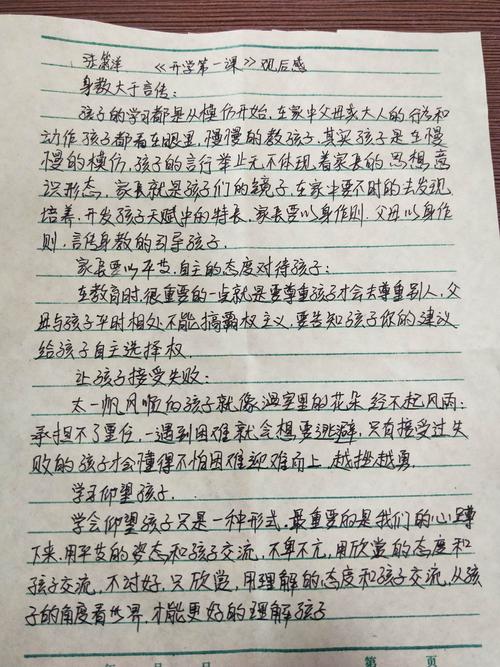 《开学第一课》观后感
身教大于言传：
孩子的学习都是从模仿开始，在家中父母亲大人的行为和
动作孩子都看在眼里，慢慢的教孩子，其实孩子是在慢
慢的模仿，孩子的言行举止无不体现着家长的思想，意
识形态，家长就是孩子们的镜子，在家中要不时的去发现，
培养，开发孩子天赋中的特长，家长要以身作则，父母以身作
则，言传身教的引导孩子，
家长要以平等，自主的态度对待孩子：
在教育时，很重要的一点就是要尊重孩子才会去尊重别人，父
母与孩子平时相处不能搞霸权主义，要告知孩子你的建议
给孩子自主选择权．
让孩子接受失败：
太一帆风顺的孩子就像温室里的花朵经不起风雨；
承担不了重任，一遇到困难就会想要逃避，只有接受过失
败的孩子才会懂得不怕困难迎难而上，越挫越勇．
学习仰望孩子．
学会仰望孩子只是一种形式，最重要的是我们的心蹲
下来，用平等的姿态和孩子交流，不卑不亢，用欣赏的态度和
孩子交流，不讨好，只欣赏，用理解的态度和孩子交流，从孩
子的角度看世界，才能更好的理解孩子
年 月 日 第 页